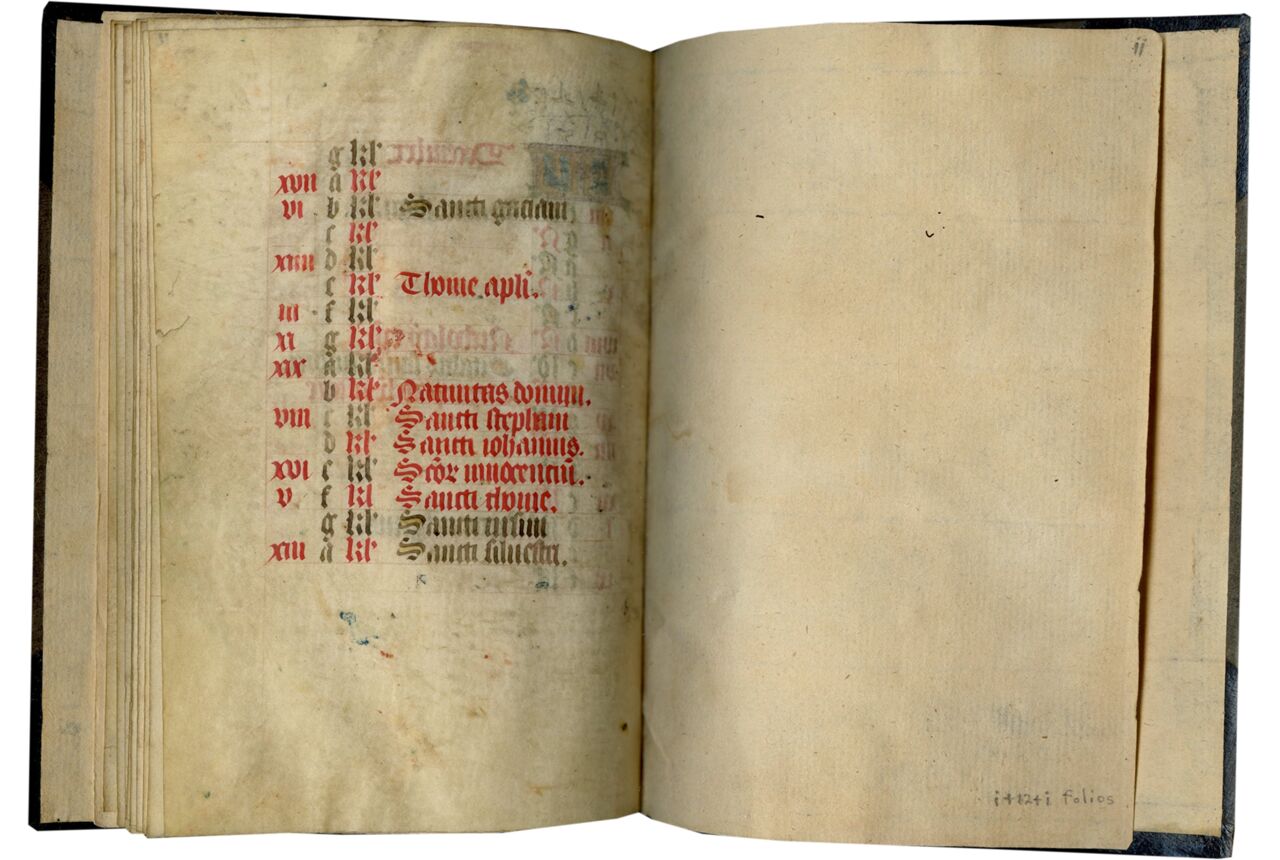 g kl
xvii a kl
vi b kl Sancti graciani
c kl
xiiii d kl
e kl Thome apli.
iii f kl
xi g kl
xix a kl
b kl Natiuitas domini.
viii c kl Sancti stephani
d kl Sancti iohannis.
xvi e kl Scõr innocentiũ.
v f kl Sancti thome.
g kl Sancti
xiii a kl Sancti siluestri.
ii
i+12+i folios